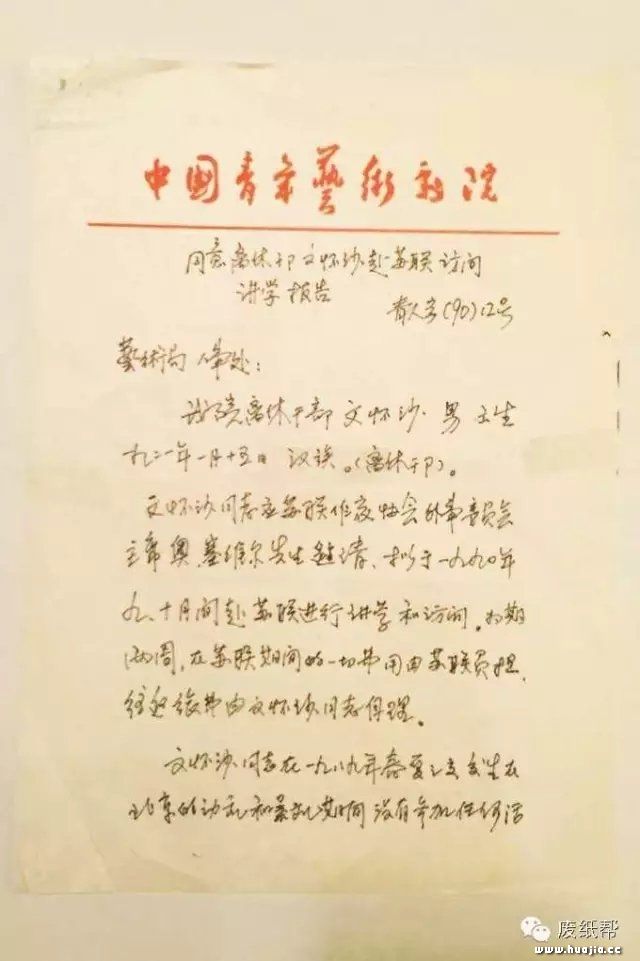 中国青年艺术剧院
同意离休干部文怀沙赴苏联访问
讲学报告
青人字(90)12号
艺术局人事处：
我院离休干部文怀沙.男 出生
一九二一年一月十五日 汉族。(离休干部)。
文怀沙同志应苏联作家协会外事委员会
主席奥.塞维尔先生邀请，拟于一九九〇年
九、十月间赴苏联进行讲学和访问，为期
两周，在苏联期间的一切费用由苏联负担，
往返旅费由文怀沙同志自理。
文怀沙同志在一九八九年春夏之交发生在
北京的动乱和暴乱期间没有参加任何活
废纸帮
www.huajia.cc